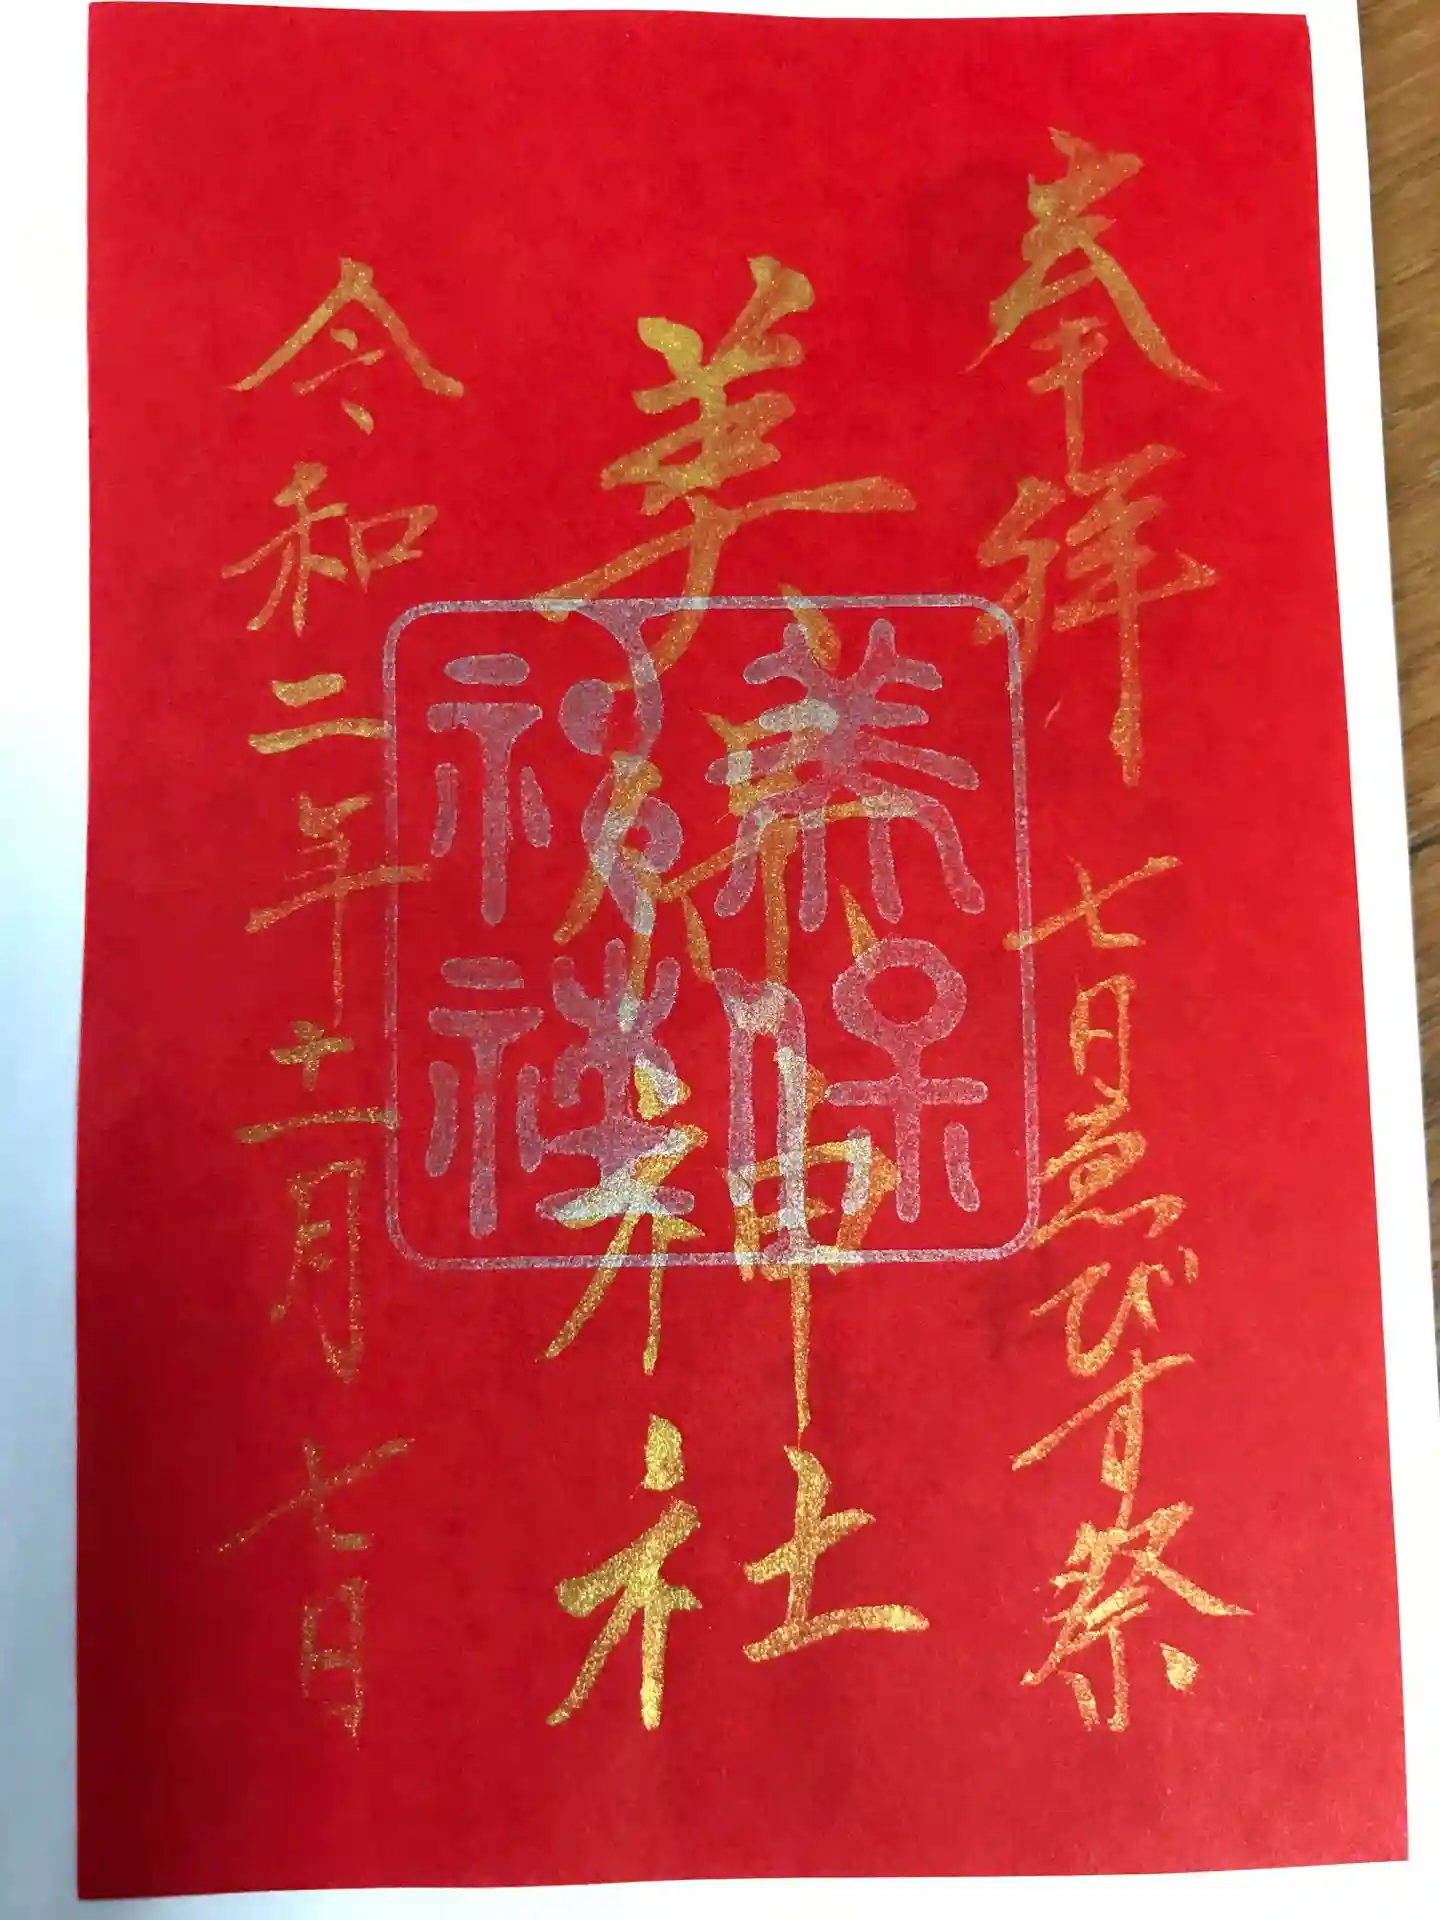 奉拝 七日ゑびす祭
美保神社
美保神社
令和二年十一月七日